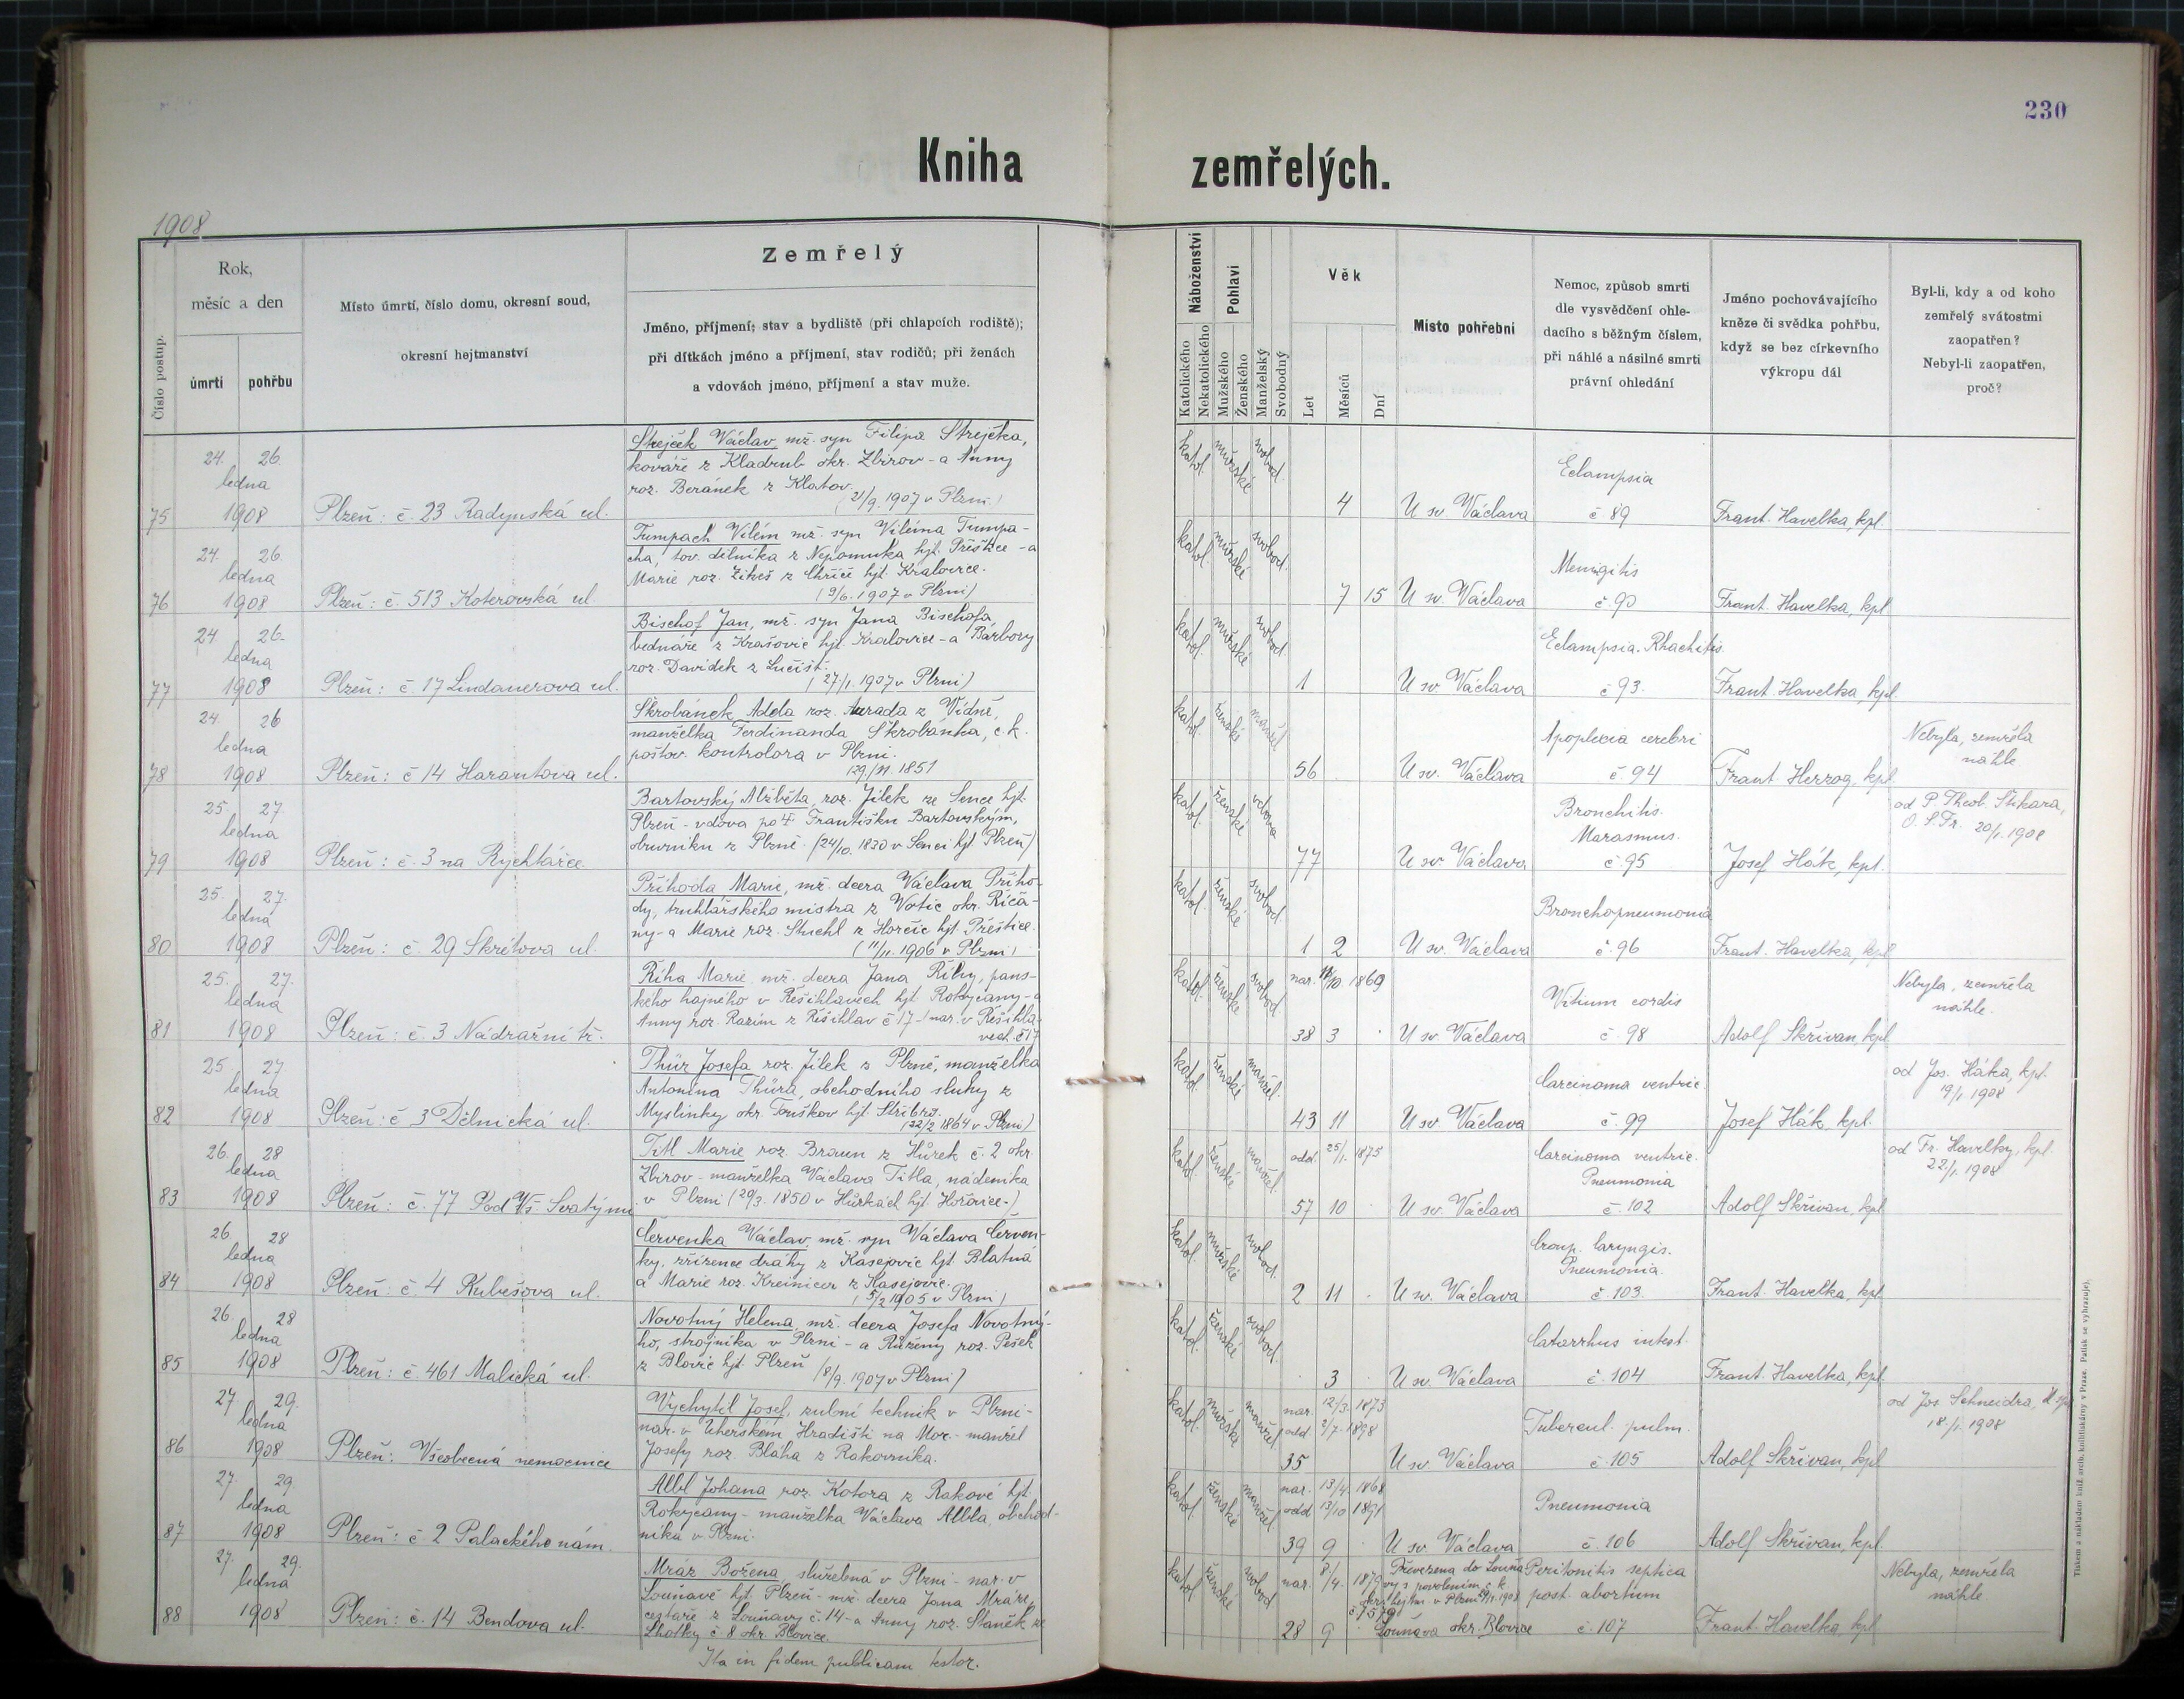 230
Kniha zemřelých.
1908
Číslo postup.
Rok,
měsíc a den
úmrtí
pohřbu
Místo úmrtí, číslo domu, okresní soud,
okresní hejtmanství
Zemřelý
Jméno, příjmení; stav a bydliště (při chlapcích rodiště);
při dítkách jméno a příjmení, stav rodičů; při ženách
a vdovách jméno, příjmení a stav muže.
Náboženství
Katolického
Nekatolického
Pohlaví
Mužského
Ženského
Manželský
Svobodný
Věk
Let
Měsíců
Dní
Místo pohřební
Nemoc, způsob smrti
dle vysvědčení ohle-
dacího s běžným číslem,
při náhlé a násilné smrti
právní ohledání
Jméno pochovávajícího
kněze či svědka pohřbu,
když se bez církevního
výkropu dál
Byl-li, kdy a od koho
zemřelý svátostmi
zaopatřen?
Nebyl-li zaopatřen,
proč?
75
24. 26.
ledna
1908
Plzeň: č. 23 Radynská ul.
Strejček Václav, mž. syn Filipa Strejčka,
kováře z Kladrub okr. Zbirov - a Anny
roz. Beránek z Klatov.
(21/9. 1907 v Plzni)
katol. mužské svobod.
4
U sv. Václava
Eclampsia
č 89
Frant. Havelka, kpl.
76
24. 26.
ledna
1908
Plzeň: č. 513 Koterovská ul.
Tumpach Vilém mž. syn Viléma Tumpa-
cha, tov. dělníka z Nepomuka hjt. Přeštice - a
Marie roz. Zikeš z Chříče hjt. Kralovice.
(9/6. 1907 v Plzni)
katol. mužské svobod.
7 15
U sv. Václava
Meningitis
č. 90
Frant. Havelka, kpl.
77
24 26.
ledna
1908
Plzeň: č. 17 Lindauerova ul.
Bischof Jan, mž. syn Jana Bischofa,
bednáře z Krašovic hjt. Kralovice - a Barbory
roz. Davídek z Lučišt.
(27/1. 1907 v Plzni)
katol. mužské svobod.
1
U sv. Václava
Eclampsia. Rhachitis.
č 93.
Frant. Havelka, kpl.
78
24. 26
ledna
1908
Plzeň: č 14 Harantova ul.
Skrobánek Adela roz. z Vídně,
manželka Ferdinanda Skrobánka, c. k.
poštov. kontrolora v Plzni.
29/11. 1851
katol. ženské manžel.
56
U sv. Václava
Apoplexia cerebri
č 94
Frant Herzog, kpl.
Nebyla, zemřela
náhle
79
25 27.
ledna
1908
Plzeň: č. 3 na Rychtářce
Bartovský Alžběta, roz. Jílek ze Sence hjt.
Plzeň - vdova po † Františku Bartovským,
obuvníku z Plzně. (24/10. 1830 v Senci hjt Plzeň)
katol. ženské vdova
77
U sv. Václava
Bronchitis.
Marasmus.
č. 95
Josef Hák, kpl.
od P. Theob. Šlikara,
O. S. Fr. 20/1. 1908
80
25. 27.
ledna
1908
Plzeň: č. 29 Skrétova ul.
Příhoda Marie, mž. dcera Václava Přího-
dy, truhlářského mistra z Votic okr. Říča-
ny - a Marie roz. Stuchl z Horčic hjt. Přeštice.
(11/11. 1906 v Plzni)
katol. ženské svobod.
1 2
U sv. Václava
Bronchopneumonia
č. 96
Frant. Havelka, kpl
81
25. 27.
ledna
1908
Plzeň: č. 3 Nádražní tř.
Říha Marie mž. dcera Jana Říhy, pans-
kého hajného v Řešihlavech hjt. Rokycany - a
Anny roz. Razím z Řešihlav č 17 - nar. v Řešihla-
vech č 17
katol. ženské svobod.
nar. 10. 1869
38 3
U sv. Václava
Vitium cordis
č. 98
Adolf Skřivan, kpl
Nebyla, zemřela
náhle.
82
25 27
ledna
1908
Plzeň: č 3 Dělnická ul.
Thür Josefa roz. Jílek z Plzně, manželka
Antonína Thüra, obchodního sluhy z
Myslinky okr. Touškov hjt. Stříbro.
(22/2 1864 v Plzni)
katol. ženské manžel.
43 11
U sv. Václava
Carcinoma ventric.
č. 99
Josef Hák, kpl.
od Jos. Háka, kpl.
19/1 1908
83
26. 28
ledna
1908
Plzeň: č. 77 Pod Vš. Svatými
Titl Marie roz. Braun z Hůrek č. 2 okr.
Zbirov - manželka Václava Titla, nádeníka
v Plzni (29/3. 1850 v Hůrkách hjt. Hořovice -)
katol. ženské manžel.
odd. 25/1. 1875
57 10
U sv. Václava
Carcinoma ventric.
Pneumonia
č. 102
Adolf Skřivan, kpl
od Fr. Havelky, kpl.
22/1. 1908
84
26 28
ledna
1908
Plzeň: č. 4 Kubešova ul.
Červenka Václav, mž. syn Václava Červen-
ky, zřízence dráhy z Kasejovic hjt. Blatná
a Marie roz. Kreinicer z Kasejovic.
(5/2 1905 v Plzni)
katol. mužské svobod.
2 11
U sv. Václava
Croup. laryngis.
Pneumonia.
č. 103.
Frant. Havelka, kpl
85
26. 28
ledna
1908
Plzeň: č. 461 Malická ul.
Novotný Helena, mž. dcera Josefa Novotný-
ho, strojníka v Plzni - a Růženy roz. Pešek
z Blovic hjt. Plzeň (8/9. 1907 v Plzni)
katol. ženské svobod.
3
U sv. Václava
Catarrhus intest.
č. 104
Frant. Havelka, kpl
86
27 29.
ledna
1908
Plzeň: Všeobecná nemocnice
Vychytil Josef, zubní technik v Plzni -
nar. v Uherském Hradišti na Mor. - manžel
Josefy roz Bláha z Rakovníka.
katol. mužské manžel
nar. 12/3. 1873
odd. 2/7. 1898
35
U sv. Václava
Tubercul. pulm.
č 105
Adolf Skřivan, kpl
od Jos. Schneidra,
18./1. 1908
87
27. 29
ledna
1908
Plzeň: č 2 Palackého nám.
Albl Johana roz. Kotora z Rakové hjt.
Rokycany - manželka Václava Albla, obchod-
níka v Plzni.
katol. ženské manžel.
nar. 13/4. 1868
odd 13/10 1891
39 9
U sv. Václava
Pneumonia
č. 106
Adolf Skřivan, kpl.
88
27. 29.
ledna
1908
Plzeň: č. 14 Bendova ul.
Mráz Božena, služebná v Plzni - nar. v
Louňavě hjt. Plzeň - mž. dcera Jana Mráze,
cestáře z Louňavy č. 14 - a Anny roz. Staněk ze
Lhotky č. 8 okr. Blovice.
katol. ženské svobod
nar. 8/4. 1879
28 9
Převezena do Louňa-
vy s povolením c. k.
okr. hejtm. v Plzni 29/1. 1908
č 1579
Louňava okr. Blovice
Peritonitis septica
post. abortum
č. 107
Frant. Havelka, kpl
Nebyla, zemřela
náhle
Ita in fidem publicam testor.
Tiskem a nákladem kníž. arcib. knihtiskárny v Praze. Patisk se vyhrazuje.